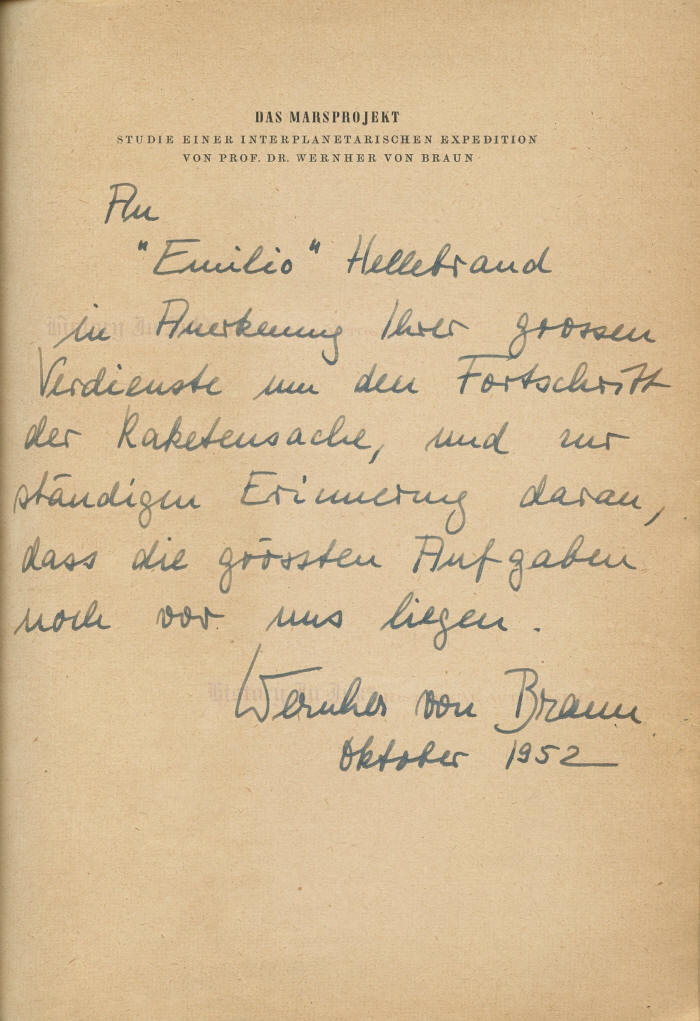 DAS MARSPROJEKT
STUDIE EINER INTERPLANETARISCHEN EXPEDITION
VON PROF. DR. WERNHER VON BRAUN
An
"Emilio" Hellebrand
in Anerkennung Ihrer grossen
Verdienste um den Fortschritt
der Raketensache, und zur
ständigen Erinnerung daran,
dass die grössten Aufgaben
noch vor uns liegen.
Wernher von Braun
Oktober 1952